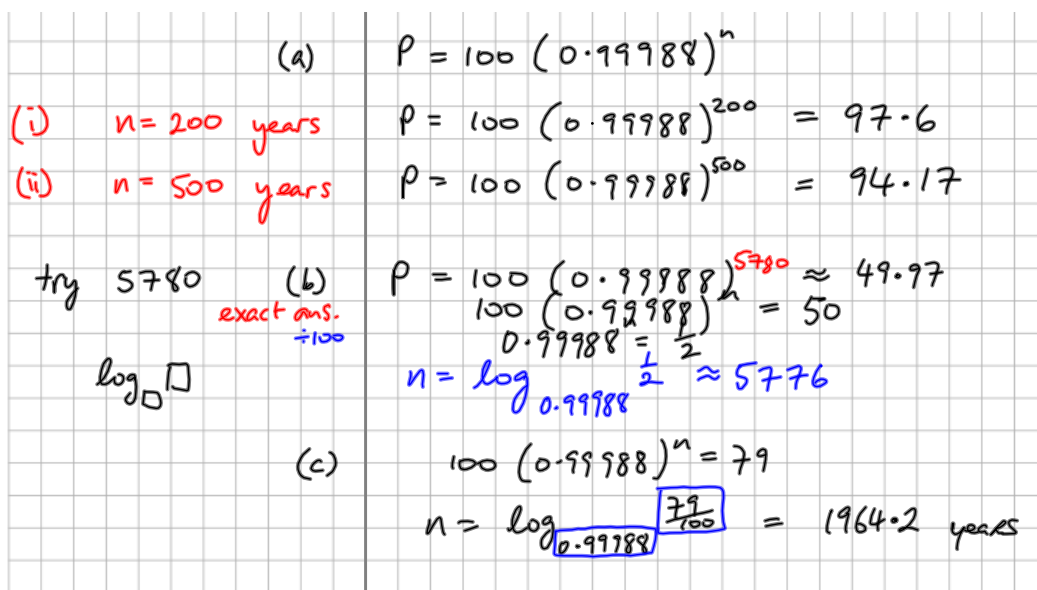 (a) P = 100 (0.99988)^n
(i) n = 200 years P = 100 (0.99988)^200 = 97.6
(ii) n = 500 years P = 100 (0.99988)^500 = 94.17
try 5780 (b) P = 100 (0.99988)^5780 ≈ 49.97
exact ans. 100 (0.99988)^n = 50
÷100 0.99988^n = 1/2
log_□ □ n = log_0.99988 1/2 ≈ 5776
(c) 100 (0.99988)^n = 79
n = log_0.99988 79/100 = 1964.2 years